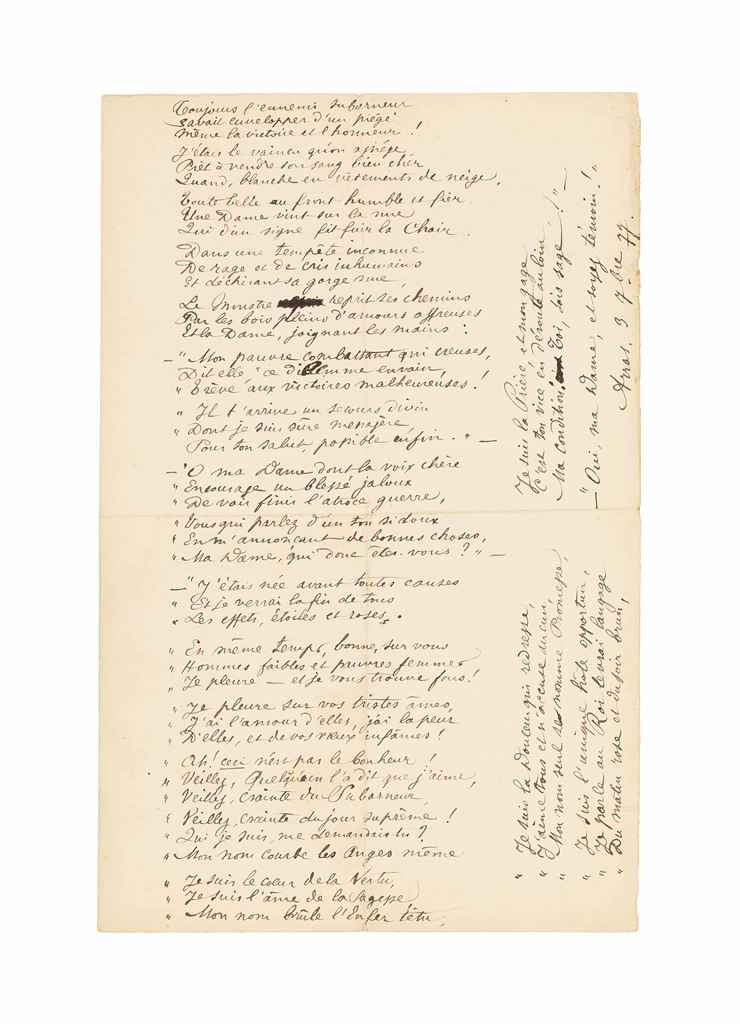 Toujours l'ennemi suborneur
Savait envelopper d'un piège
Même la victoire et l'honneur !
J'étais le vaincu qu'on assiège
Prêt à vendre son sang bien cher
Quand, blanche en vêtements de neige,
Toute belle au front humble et fier
Une Dame vint sur la nue
Qui d'un signe fit fuir la Chair.
Dans une tempête inconnue
De rage et de cris inhumains
Et déchirant sa gorge nue,
Le Monstre reprit ses chemins
Par les bois pleins d'amours affreuses
Et la Dame, joignant les mains :
— "Mon pauvre combattant qui creuses,
Dit elle " ce dilemme en vain,
" Trève aux victoires malheureuses !
" Il t'arrive un secours divin
" Dont je suis sûre messagère,
" Pour ton salut, possible enfin. " —
— "O ma Dame dont la voix chère
" Encourage un blessé jaloux
" De voir finir l'atroce guerre,
" Vous qui parlez d'un ton si doux
" En m'annonçant de bonnes choses,
" Ma Dame, qui donc êtes-vous ? " —
— "J'étais née avant toutes causes
" Et je verrai la fin de tous
" Les effets, étoiles et roses.
" En même temps, bonne, sur vous
" Hommes faibles et pauvres femmes
" Je pleure — et je vous trouve fous !
" Je pleure sur vos tristes âmes,
" J'ai l'amour d'elles, j'ai la peur
" D'elles, et de vos vœux infâmes !
" Ah ! ceci n'est pas le bonheur !
" Veillez, Quelqu'un l'a dit que j'aime,
" Veillez, crainte du Suborneur,
" Veillez, crainte du jour suprême !
" Qui je suis, me demandais tu ?
" Mon nom courbe les Anges même
" Je suis le cœur de la Vertu,
" Je suis l'âme de la Sagesse
" Mon nom brûle l'Enfer têtu,
" Je suis la Douceur qui redresse,
" J'aime tous et n'accuse aucun,
" Mon nom seul se nomme Promesse,
" Je suis l'unique hôte opportun,
" Je parle au Roi le vrai langage
" Du matin rose et du soir brun,
Je suis la Prière, et mon gage
C'est ton vice en déroute au loin
Ma condition: Toi, sois sage ! " —
— "Oui, ma Dame, et soyez témoin ! "
Arras. 3 7bre 77.